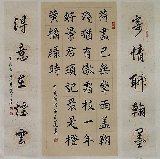 寄情聊翰墨
荷盡已無擎雨蓋菊
殘猶有傲霜枝一年
好景君須記最是橙
黃橘綠時
得意在煙雲